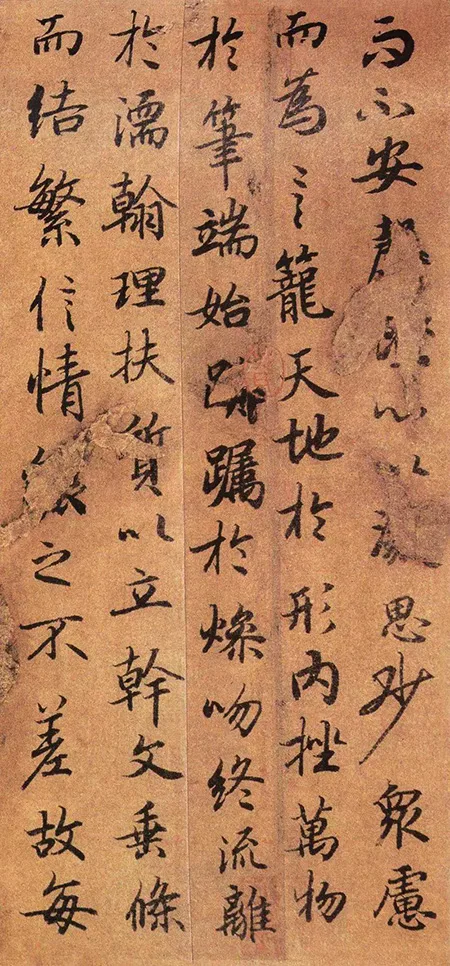 而不安心以思眇眾慮
而為言籠天地於形內挫萬物
於筆端始躑躅於燥吻終流離
於濡翰理扶質以立幹文垂條
而結繁信情之不差故每